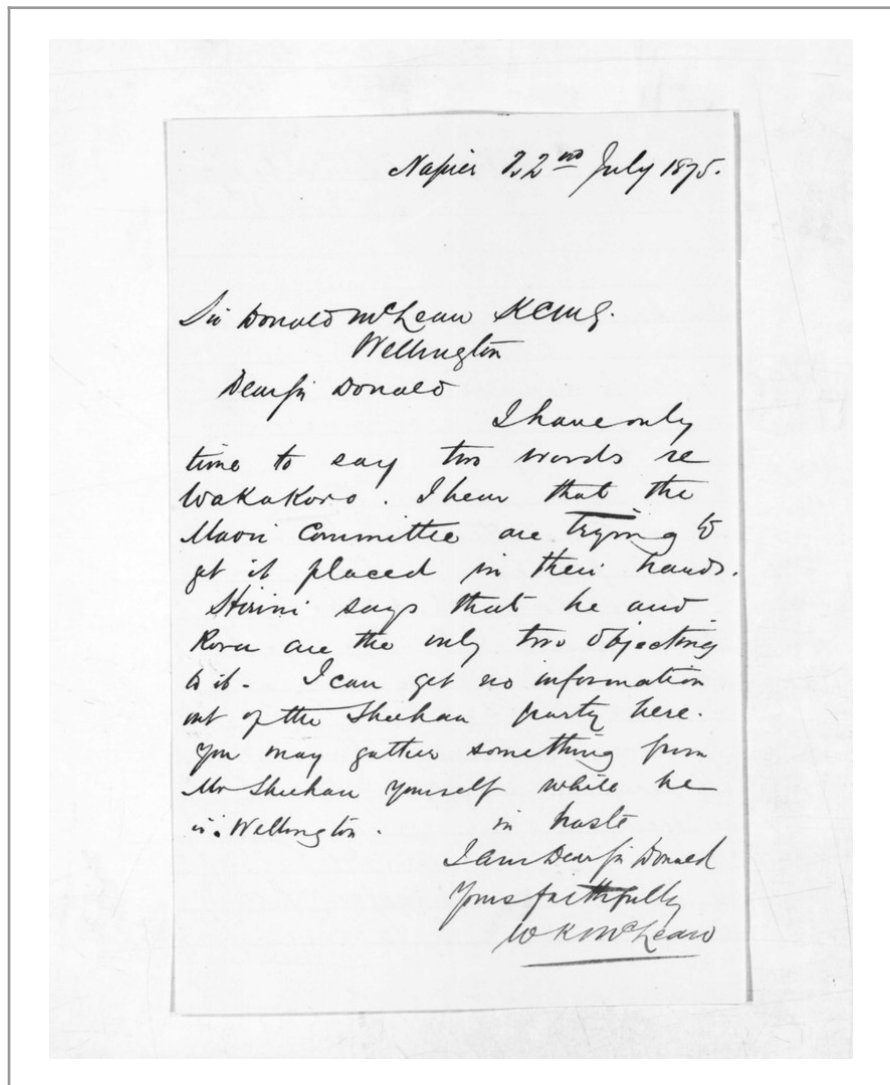 Napier 22nd July 1875.
Sir Donald McLean KCMG.
Wellington
Dear Sir Donald
I have only
time to say two words re
Wakakoro. I hear that the
Maori Committee are trying to
get it placed in their hands.
Hirini says that he and
are the only two objecting
to it. I can get no information
out of the Sheehan party here.
You may gather something from
Mr Sheehan yourself while he
is Wellington. in haste
I am Dear Sir Donald
Yours faithfully
McLean